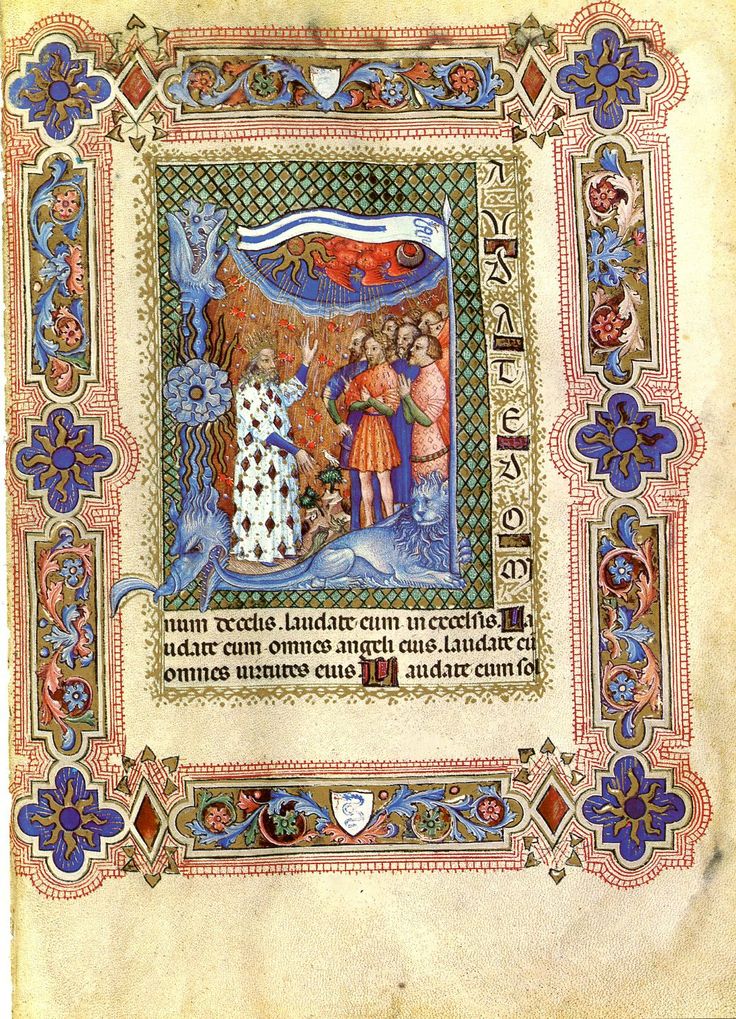 LAUDATE DOMI
num de celis. laudate eum in excelsis. La
udate eum omnes angeli eius. laudate eu
omnes uirtutes eius Laudate eum sol